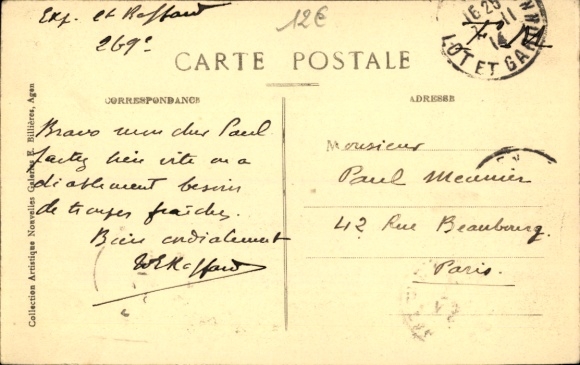 Exp. et Raffard
269e
12€
16 25
11
14
LOT ET GAR
CARTE POSTALE
CORRESPONDANCE
ADRESSE
Bravo mon cher Paul
Partez bien vite on a
diablement besoin
de troupes fraîches.
Bien cordialement
Raffard
Monsieur
Paul Meunier
42 Rue Beaubourg.
Paris.
Collection Artistique Nouvelles Galeries E. Billières, Agen